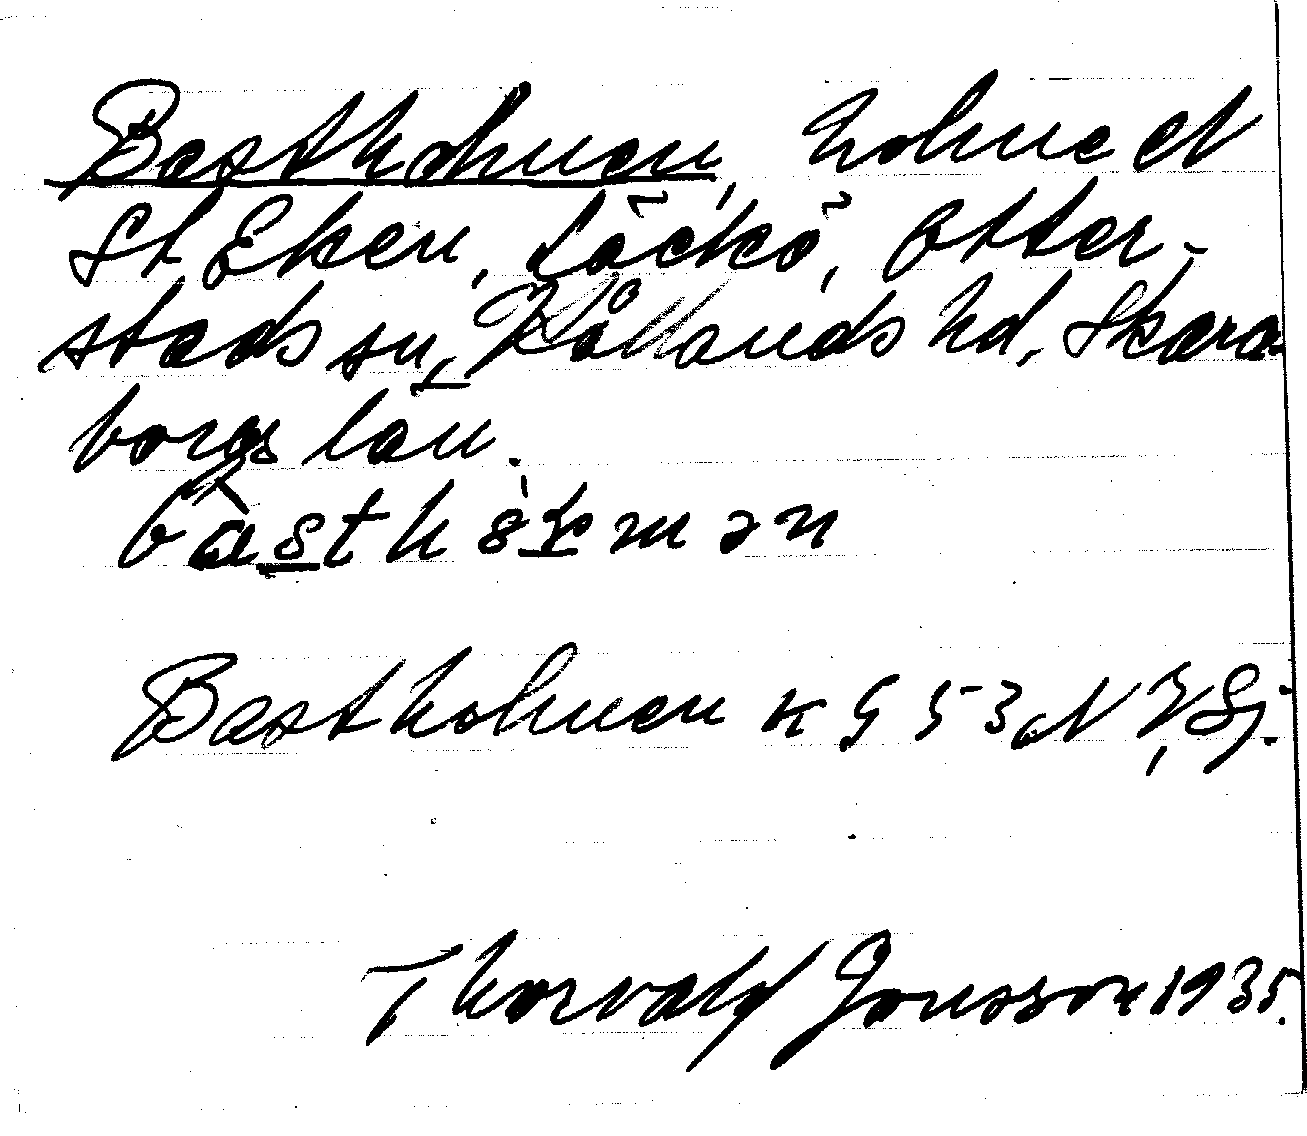 Bastholmen, holme et
St. Eken, Läckö, Otter-
stads sn, Kållands hd, Skara
borgs län.
Bastholmen
Thorvald Jonsson 1935.